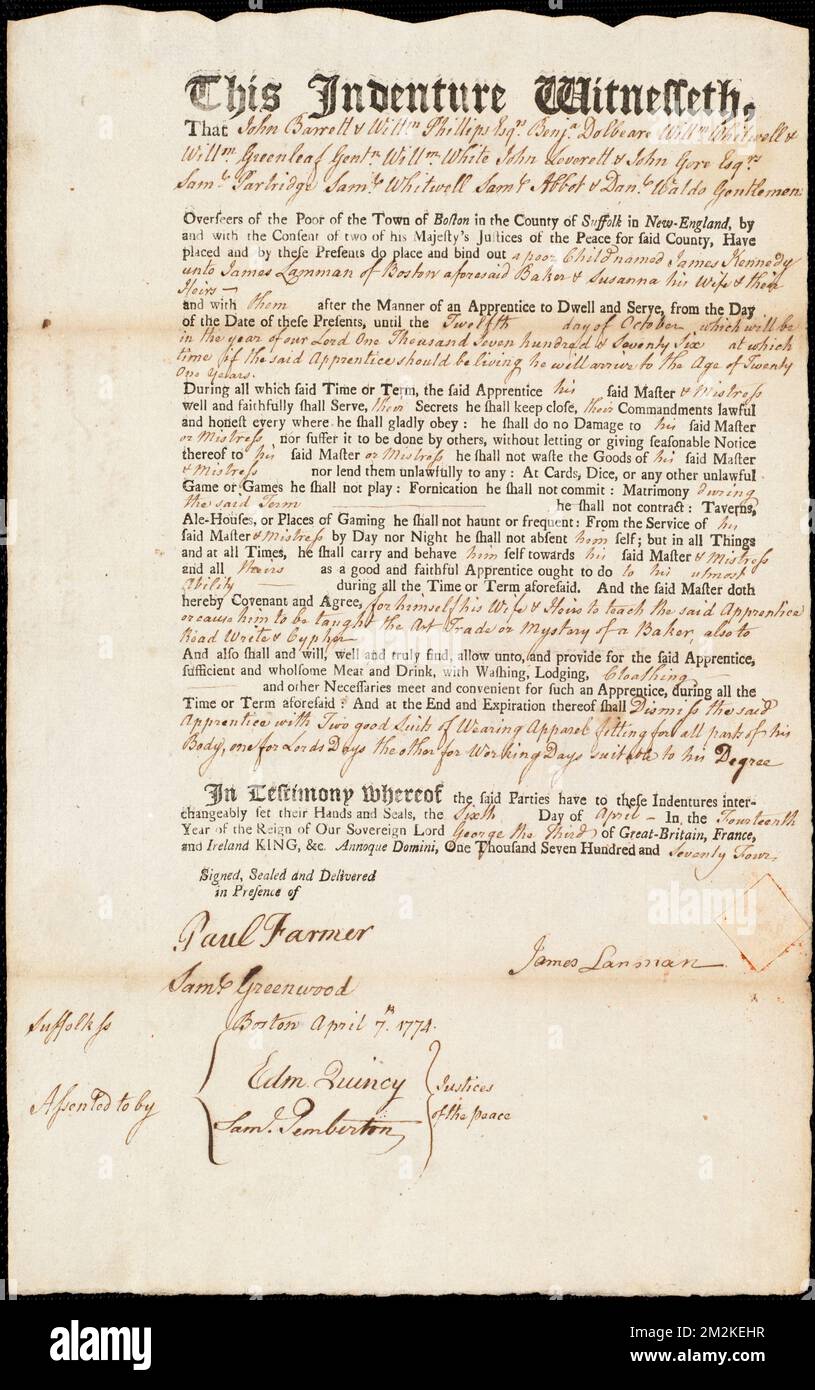 This Indenture Witnesseth,
That John Barrett & Willm Phillips Esqrs. Benja. Dolbeare Willm Whitwell &
Willm. Greenleaf Gentn. Willm. White John Leverett & John Gore Esqrs
Saml. Partridge Saml. Whitwell Saml. Abbot & Danl. Waldo Gentlemen
Overseers of the Poor of the Town of Boston in the County of Suffolk in New-England, by
and with the Consent of two of his Majesty's Justices of the Peace for said County, Have
placed and by these Presents do place and bind out a poor Child named James Kennedy
unto James Lanman of Boston aforesaid Baker & Susanna his Wife & their
Heirs
and with them after the Manner of an Apprentice to Dwell and Serve, from the Day
of the Date of these Presents, until the Twelfth day of October which will be
in the year of our Lord One Thousand Seven hundred & Seventy Six at which
time if the said Apprentice should be living he will arrive to the Age of Twenty
One Years.
During all which said Time or Term, the said Apprentice his said Master & Mistress
well and faithfully shall Serve, their Secrets he shall keep close, their Commandments lawful
and honest every where he shall gladly obey : he shall do no Damage to his said Master
or Mistress nor suffer it to be done by others, without letting or giving seasonable Notice
thereof to his said Master or Mistress he shall not waste the Goods of his said Master
& Mistress nor lend them unlawfully to any : At Cards, Dice, or any other unlawful
Game or Games he shall not play : Fornication he shall not commit : Matrimony during
the said Term he shall not contract : Taverns,
Ale-Houses, or Places of Gaming he shall not haunt or frequent : From the Service of his
said Master & Mistress by Day nor Night he shall not absent him self; but in all Things
and at all Times, he shall carry and behave him self towards his said Master & Mistress
and all theirs as a good and faithful Apprentice ought to do to his utmost
Ability during all the Time or Term aforesaid. And the said Master doth
hereby Covenant and Agree, for himself his Wife & Heirs to teach the said Apprentice
or cause him to be taught the Art Trade or Mystery of a Baker, also to
Read Write & Cypher
And also shall and will, well and truly find, allow unto, and provide for the said Apprentice,
sufficient and wholsome Meat and Drink, with Washing, Lodging, Cloathing
and other Necessaries meet and convenient for such an Apprentice, during all the
Time or Term aforesaid : And at the End and Expiration thereof shall Dismiss the said
Apprentice with Two good Suits of Wearing Apparel fitting for all parts of his
Body, one for Lords Days the other for Working Days suitable to his Degree
In Testimony whereof the said Parties have to these Indentures inter-
changeably set their Hands and Seals, the Sixth Day of April In the Fourteenth
Year of the Reign of Our Sovereign Lord George the Third of Great-Britain, France,
and Ireland KING, &c. Annoque Domini, One Thousand Seven Hundred and Seventy Four
Signed, Sealed and Delivered
in Presence of
Paul Farmer
James Lanman
Saml. Greenwood
Suffolk ss Boston April 7th. 1774.
Edm. Quincy Justices
Assented to by of the peace
Saml. Pemberton
alamy
Image ID: 2M2KEHR
www.alamy.com